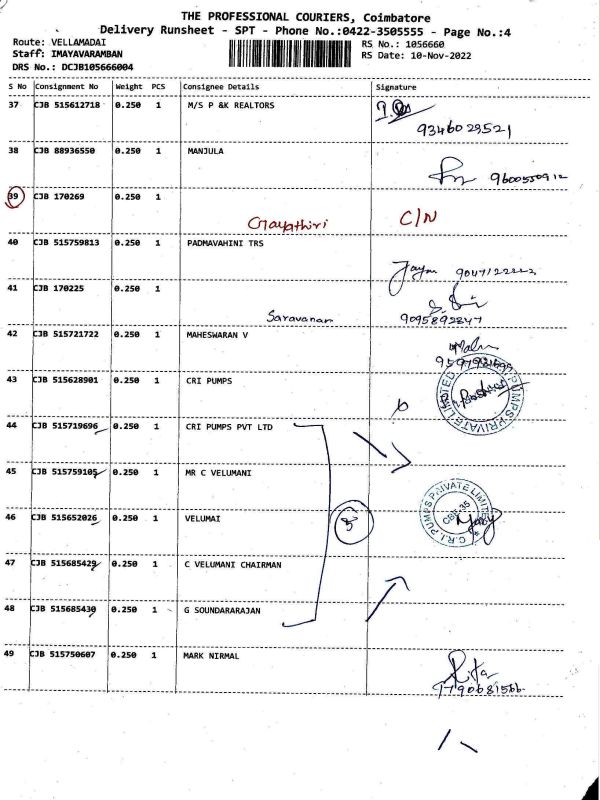 THE PROFESSIONAL COURIERS, Coimbatore
Delivery Runsheet - SPT - Phone No.:0422-3505555 - Page No.:4
Route: VELLAMADAI
Staff: IMAYAVARAMBAN
DRS No.: DCJB105666004
RS No.: 1056660
RS Date: 10-Nov-2022
S No Consignment No Weight PCS Consignee Details Signature
37 CJB 515612718 0.250 1 M/S P &K REALTORS
9346029521
38 CJB 88936550 0.250 1 MANJULA
9600550912
39 CJB 170269 0.250 1
Gayathiri C/N
40 CJB 515759813 0.250 1 PADMAVAHINI TRS
41 CJB 170225 0.250 1
Saravanan 9095892847
42 CJB 515721722 0.250 1 MAHESWARAN V
43 CJB 515628901 0.250 1 CRI PUMPS
PUMPS PRIVATE LIMITED
44 CJB 515719696 0.250 1 CRI PUMPS PVT LTD
45 CJB 515759105 0.250 1 MR C VELUMANI
46 CJB 515652026 0.250 1 VELUMAI
8
C.R.I. PUMPS PRIVATE LIMITED
CBE-35
47 CJB 515685429 0.250 1 C VELUMANI CHAIRMAN
48 CJB 515685430 0.250 1 G SOUNDARARAJAN
49 CJB 515750607 0.250 1 MARK NIRMAL
Rita
9790681566